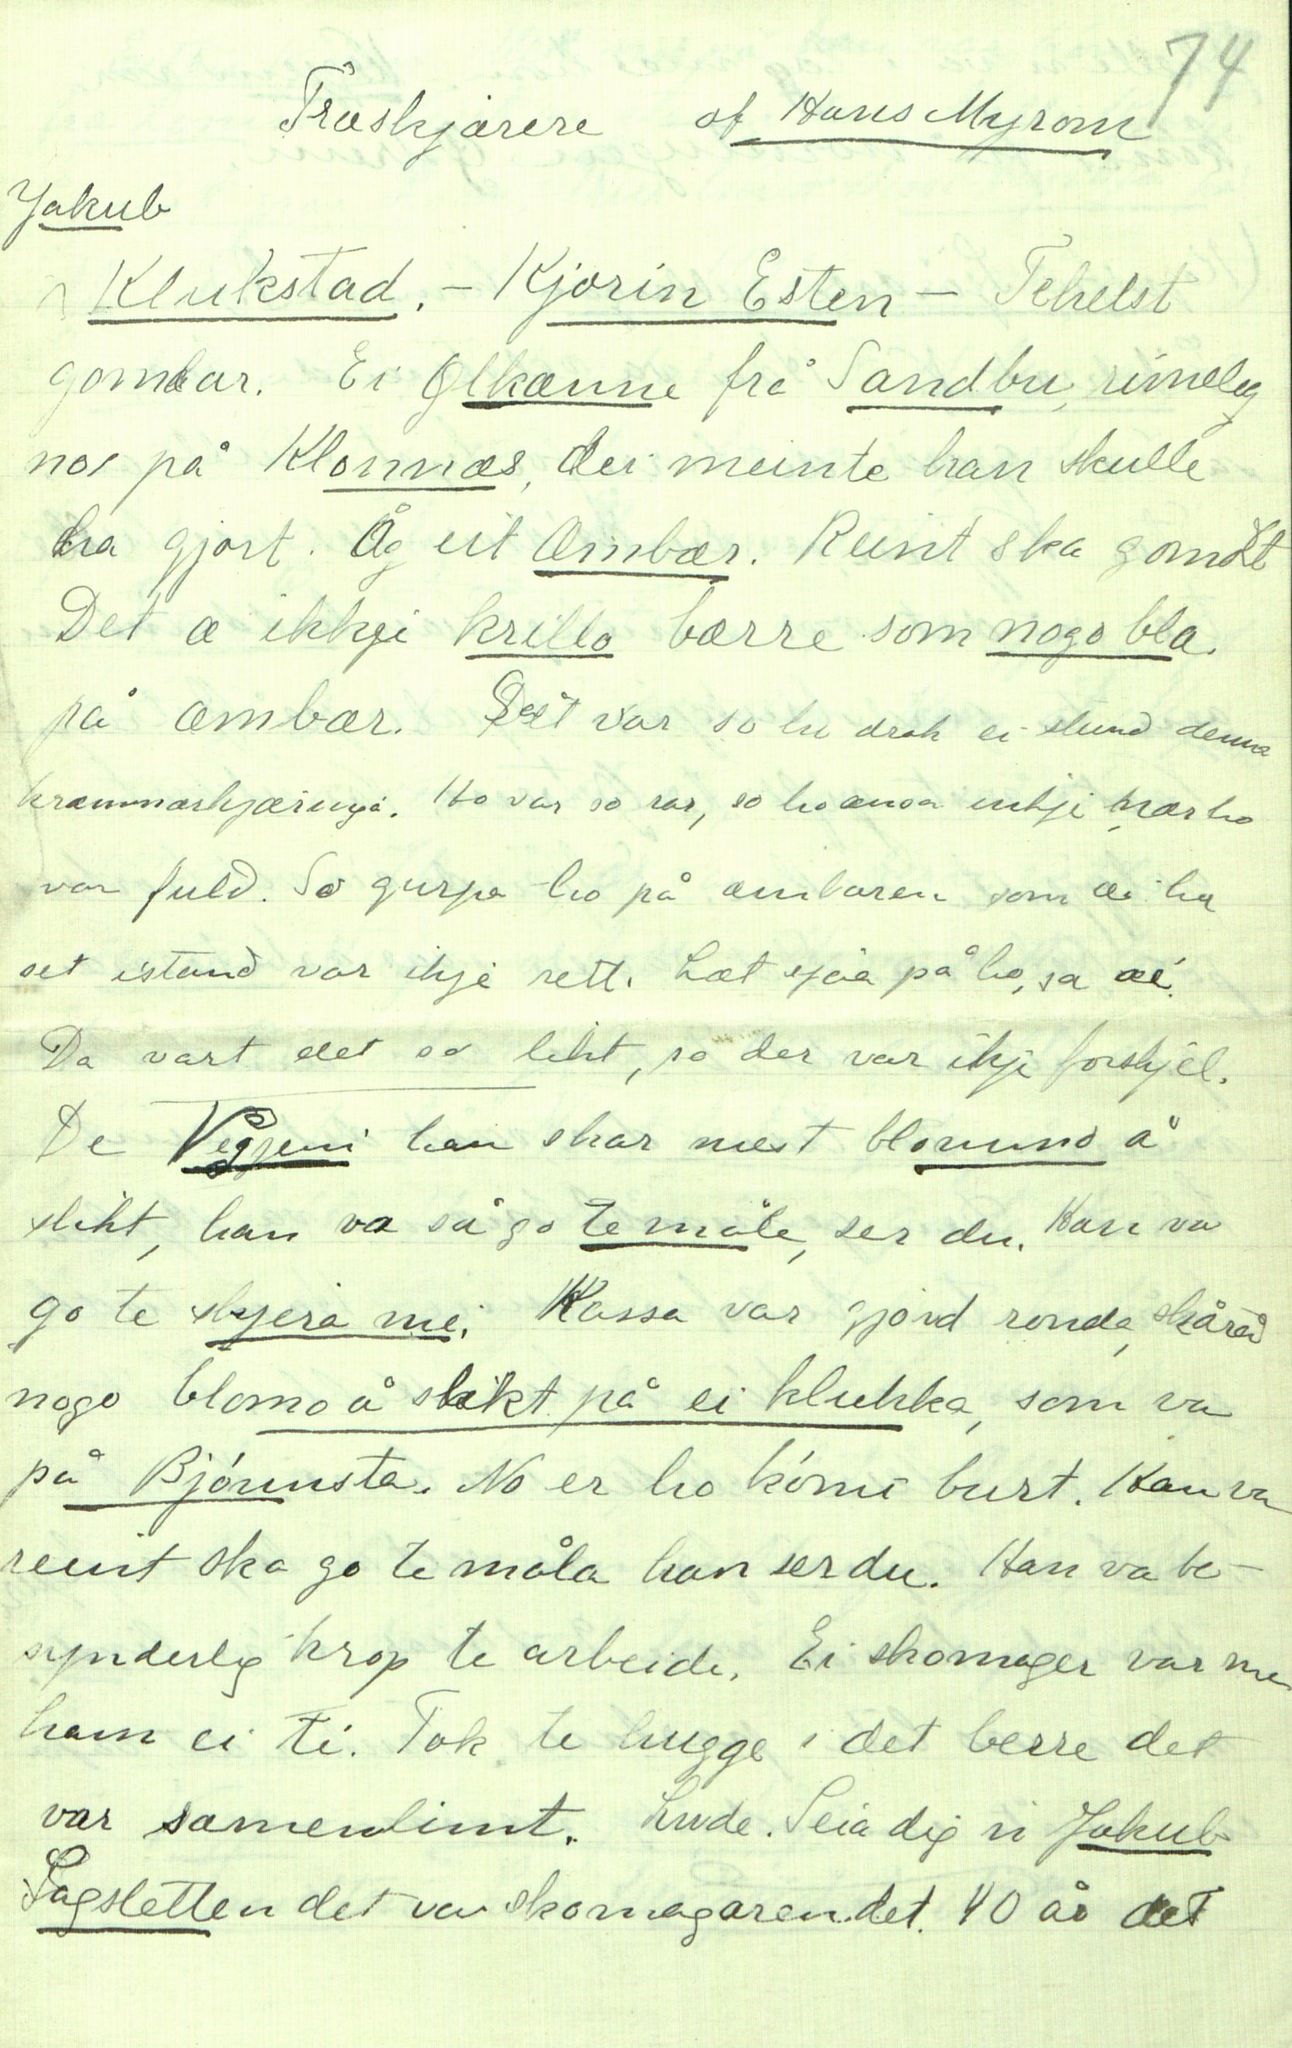 74
Træskjærere af Hans Myrom
Jakub
Klukstad. – Kjorin Esten – Tehelst
gombar. Ei Ølkænne frå Sandbu, rimeleg
nor på Klonnæs, dei meinte han skulle
ha gjort. Åg eit Æmbær. Reint ska gomalt
Det æ ikkje krillo bærre som nogo bla.
på æmbær. Det var so hu drak ei stund denna
kræmmarkjæringa. Ho var so rar, so ho ænsa inkje når ho
var fuld. So gurpa ho på æmbaren som æi ha
set istand var ikje rett. Læt sjåa på ho, sa æi.
Da vart det so likt, so der var ikje forskjel.
De Veggjemi han skar mest blommo å
slikt, han va så go te måle, ser du. Han va
go te skjera mæ. Kassa var gjord ronde, skåræ
nogo blomo å slikt på ei klukka, som va
på Bjórnsta. No er ho kómi burt. Han va
reint ska go te måla han ser du. Han va be-
synderlig krop te arbeide. Ei skomager var me
ham ei ti. Tok te hugge i det berre det
var samenlimt. Lude. Seia dig ri Jakub
Sagsletten det var skomagaren det. 40 år det